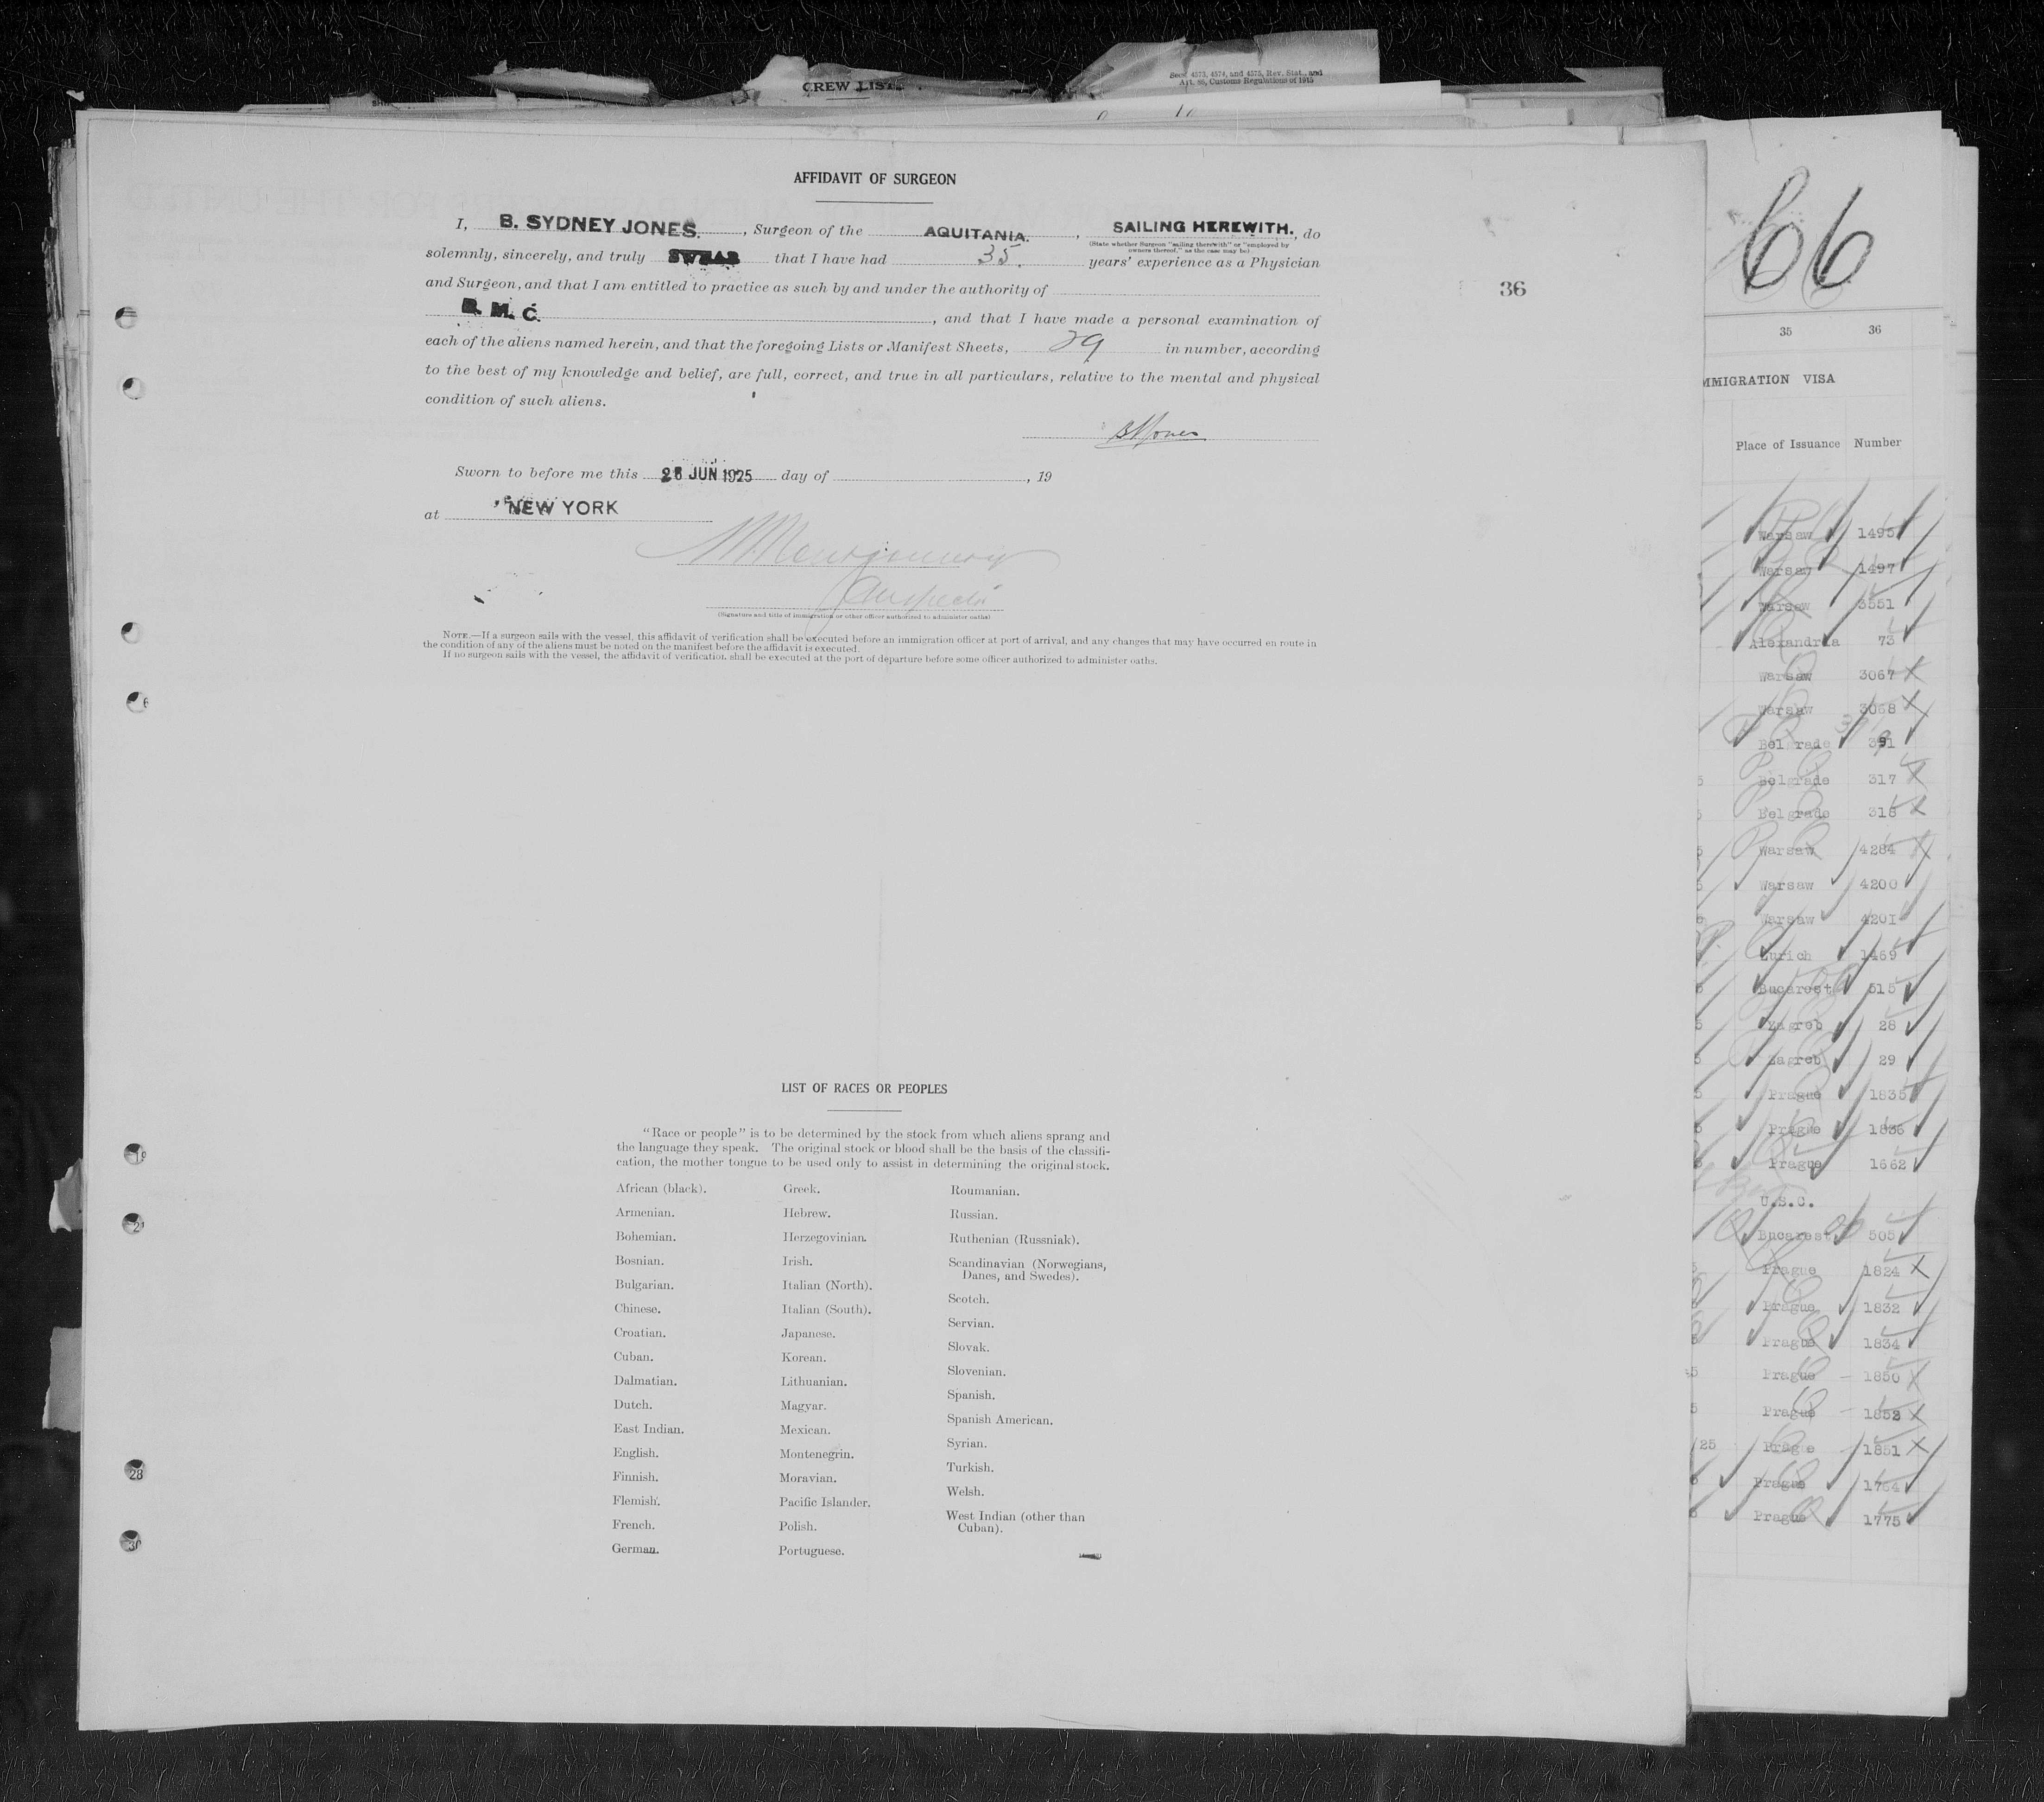 CREW LIST
Secs. 4573, 4574, and 4575, Rev. Stat., and
Art. 86, Customs Regulations of 1915
AFFIDAVIT OF SURGEON
I, B. SYDNEY JONES., Surgeon of the AQUITANIA., SAILING HEREWITH., do
(State whether Surgeon "sailing therewith" or "employed by
owners thereof," as the case may be)
solemnly, sincerely, and truly SWEAR that I have had 35. years' experience as a Physician
and Surgeon, and that I am entitled to practice as such by and under the authority of
B. M. C., and that I have made a personal examination of
each of the aliens named herein, and that the foregoing Lists or Manifest Sheets, 29 in number, according
to the best of my knowledge and belief, are full, correct, and true in all particulars, relative to the mental and physical
condition of such aliens.
BSJones
Sworn to before me this 26 JUN 1925 day of , 19
at NEW YORK
Montgomery
Inspector
(Signature and title of immigration or other officer authorized to administer oaths)
NOTE.—If a surgeon sails with the vessel, this affidavit of verification shall be executed before an immigration officer at port of arrival, and any changes that may have occurred en route in
the condition of any of the aliens must be noted on the manifest before the affidavit is executed.
If no surgeon sails with the vessel, the affidavit of verification shall be executed at the port of departure before some officer authorized to administer oaths.
36
LIST OF RACES OR PEOPLES
"Race or people" is to be determined by the stock from which aliens sprang and
the language they speak. The original stock or blood shall be the basis of the classifi-
cation, the mother tongue to be used only to assist in determining the original stock.
African (black).
Armenian.
Bohemian.
Bosnian.
Bulgarian.
Chinese.
Croatian.
Cuban.
Dalmatian.
Dutch.
East Indian.
English.
Finnish.
Flemish.
French.
German.
Greek.
Hebrew.
Herzegovinian.
Irish.
Italian (North).
Italian (South).
Japanese.
Korean.
Lithuanian.
Magyar.
Mexican.
Montenegrin.
Moravian.
Pacific Islander.
Polish.
Portuguese.
Roumanian.
Russian.
Ruthenian (Russniak).
Scandinavian (Norwegians,
Danes, and Swedes).
Scotch.
Servian.
Slovak.
Slovenian.
Spanish.
Spanish American.
Syrian.
Turkish.
Welsh.
West Indian (other than
Cuban).
28
66
35 36
MMIGRATION VISA
Place of Issuance Number
Warsaw 1495
Warsaw 1497
Warsaw 3551
Alexandria 73
Warsaw 3067
Warsaw 3068
Belgrade
Belgrade 317
Belgrade 318
Warsaw 4284
Warsaw 4200
Warsaw 4201
Zurich 1469
Bucarest 515
Zagreb 28
Zagreb 29
Prague 1835
Prague 1836
Prague 1662
U.S.C.
Bucarest 505
Prague 1824
Prague 1832
Prague 1834
Prague 1850
Prague 1852
25 Prague 1851
Prague 1764
Prague 1775